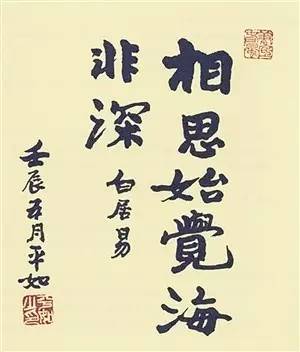 相思始覺海
非深
白居易
壬辰五月平如